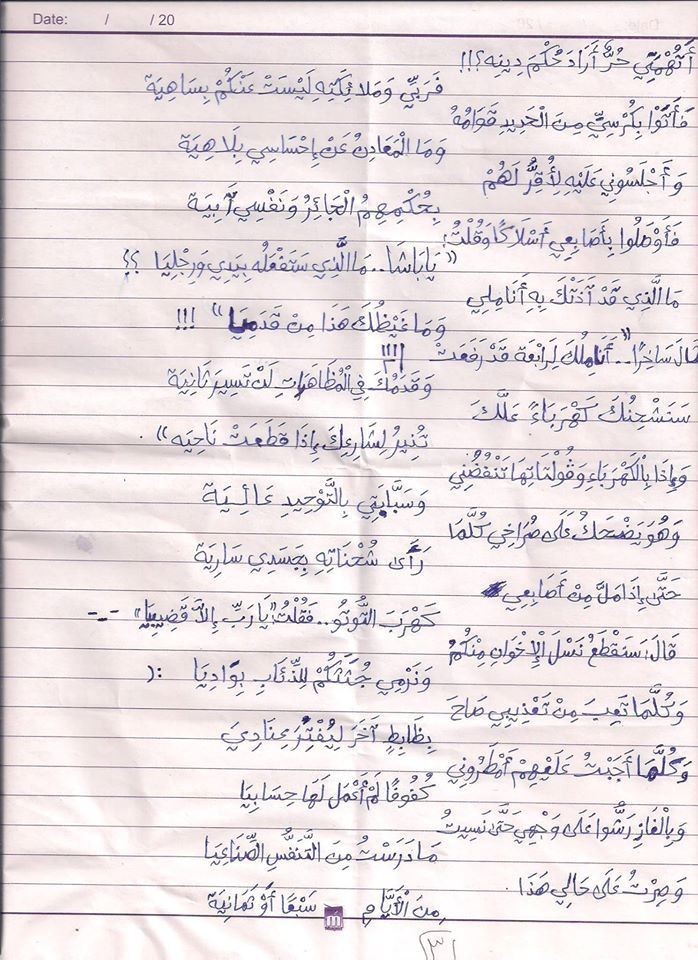 Date: / / 20
أَتَتَّهْمُنِي حُرٌّ أَرَادَ حُكْمَ دِينِه؟!!
فَرَبِّي وَمَلَائِكَتِهِ لَيْسَتْ عَنْكُمْ بِسَاهِيَة
فَأَتَوْا بِكُرْسِيٍّ مِنَ الْحَدِيدِ قَوَامُهُ
وَمَا الْمَعَادِنُ عَنْ إِحْسَاسِي بِلَاهِيَة
وَأَجْلَسُونِي عَلَيْهِ لِأُقِرَّ لَهُمْ
بِحُكْمِهِمُ الْجَائِرُ وَنَفْسِي أَبِيَة
فَأَوْصَلُوا بِأَصَابِعِي أَسْلَاكًا وَقُلْتُ:
"يَا بَاشَا.. مَا الَّذِي سَتَفْعَلُه بِيَدِي وَرِجْلِيَا ؟؟
مَا الَّذِي قَدْ آذَتْكَ بِهِ أَنَامِلِي
وَمَا غَيْظُكَ هَذَا مِنْ قَدَمِيَا" !!!
قَالَ سَاخِرًا "..أَنَامِلُكَ لِرَابْعَة قَدْ رَفَعَتْ !!!!
وَقَدَمُكَ فِي الْمُظَاهَرَاتِ لَنْ تَسِيرَ ثَانِيَة
سَنَشْحِنُكَ كَهْرَبَاءً عَلَّكَ
تُنِيرُ لِشَارِعِكَ إِذَا قَطَعَتْ نَاحِيَه" .
وَإِذَا بِالْكَهْرَبَاءِ وَفُولْتَاتِهَا تَنْفُضُنِي
وَسَبَّابَتِي بِالتَّوْحِيدِ عَالِيَة
وَهُوَ يَضْحَكُ عَلَى صُرَاخِي كُلَّمَا
رَأَى شُحْنَاتِهِ بِجَسَدِي سَارِيَة
حَتَّى إِذَا مَلَّ مِنْ أَصَابِعِي
كَهْرَبَ التُّوتُو.. فَقُلْتُ "يَا رَبِّ إِلَّا قَضِيبِيَا" -_-
قَالَ: سَنَقْطَعُ نَسْلَ الْإِخْوَانِ مِنْكُمُ
وَنَرْمِي جُثَثَكُمْ لِلذِّئَابِ بِوَادِيَا :(
وَكُلَّمَا تَعِبَ مِنْ تَعْذِيبِي صَاحَ
بِظَابِطٍ آخَرَ لِيُفْتِرَ عِنَادِيَ
وَكُلَّمَا أَجَبْتُ عَلَيْهِمْ أَمْطَرُونِي
كُفُوفًا لَمْ أَعْمَلْ لَهَا حِسَابِيَا
وَبِالْغَازِ رَشُّوا عَلَى وَجْهِي حَتَّى نَسِيتُ
مَا دَرَسْتُ مِنَ التَّنَفُّسِ الصِّنَاعِيَا
وَصِرْتُ عَلَى حَالِي هَذَا .
مِنَ الْأَيَّامِ سَبْعًا أَوْ ثَمَانِيَة
٣